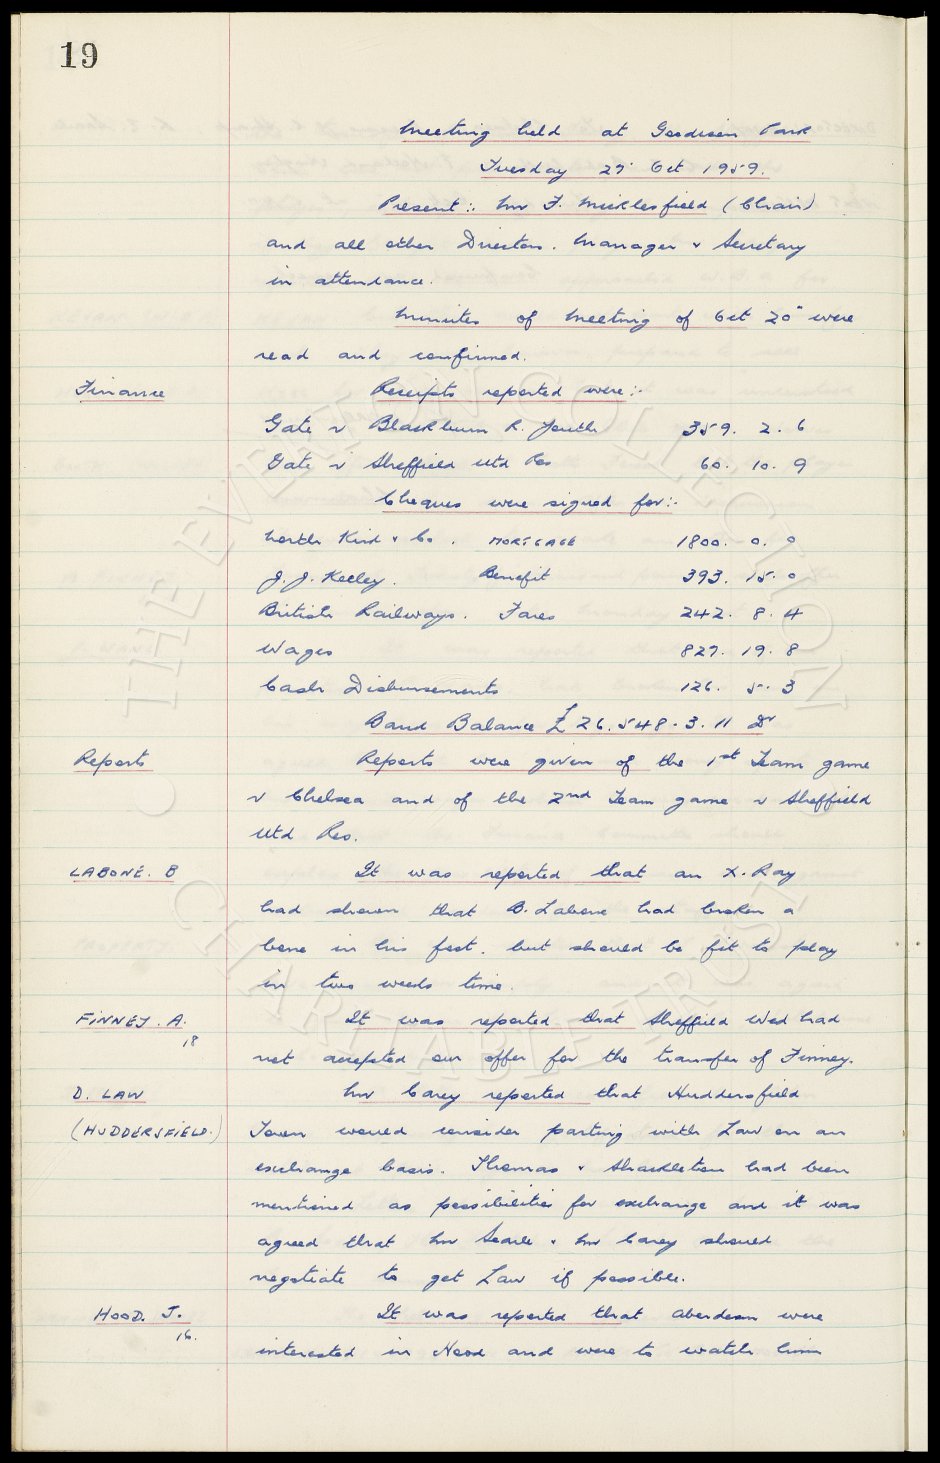 19
Meeting held at Goodison Park
Tuesday 27" Oct 1959.
Present:- Mr F. Micklesfield (Chair)
and all other Directors. Manager & Secretary
in attendance.
Minutes of Meeting of Oct 20" were
read and confirmed.
Finance Receipts reported were:-
Gate v Blackburn R. Youth 359. 2. 6
Gate v Sheffield Utd Res 60. 10. 9
Cheques were signed for:-
North Kird & Co. MORTGAGE 1800. 0. 0
J. J. Keeley. Benefit 393. 15. 0
British Railways. Fares 242. 8. 4
Wages 827. 19. 8
Cash Disbursements 126. 5. 3
Band Balance £26.548.3.11 Dr
Reports Reports were given of the 1st Team game
v Chelsea and of the 2nd Team game v Sheffield
Utd Res.
LABONE. B It was reported that an X.Ray
had shown that B. Labone had broken a
bone in his foot. but should be fit to play
in two weeks time.
FINNEY. A. It was reported that Sheffield Wed had
18
not accepted our offer for the transfer of Finney.
D. LAW Mr Carey reported that Huddersfield
(HUDDERSFIELD.) Town would consider parting with Law on an
exchange basis. Thomas & Shackleton had been
mentioned as possibilities for exchange and it was
agreed that Mr Searle & Mr Carey should
negotiate to get Law if possible.
HOOD. J. It was reported that Aberdeen were
16.
interested in Hood and were to watch him
© THE EVERTON COLLECTION
CHARITABLE TRUST